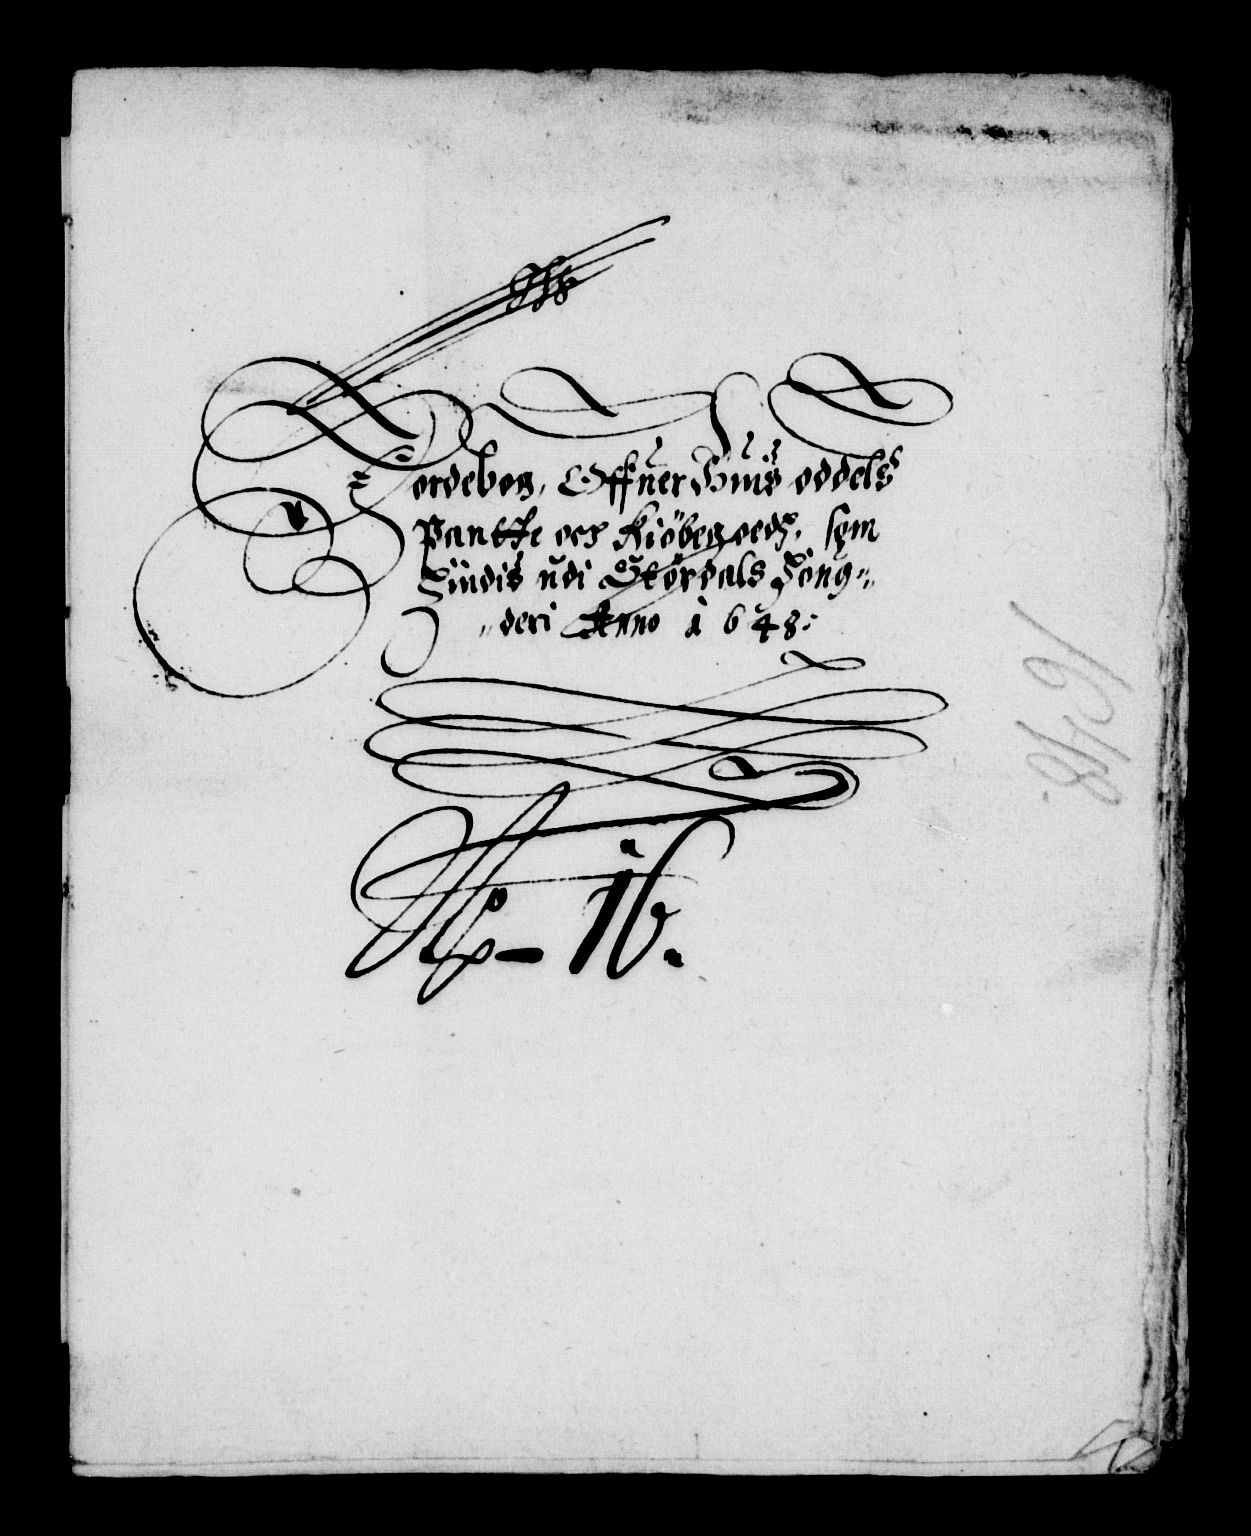 Jordebog, Offuer Huis oddels
Pantte och Kiöbegoedz, som
Findis udi Stördals Fong-
deri Anno 1648:
No- 16.
1648.